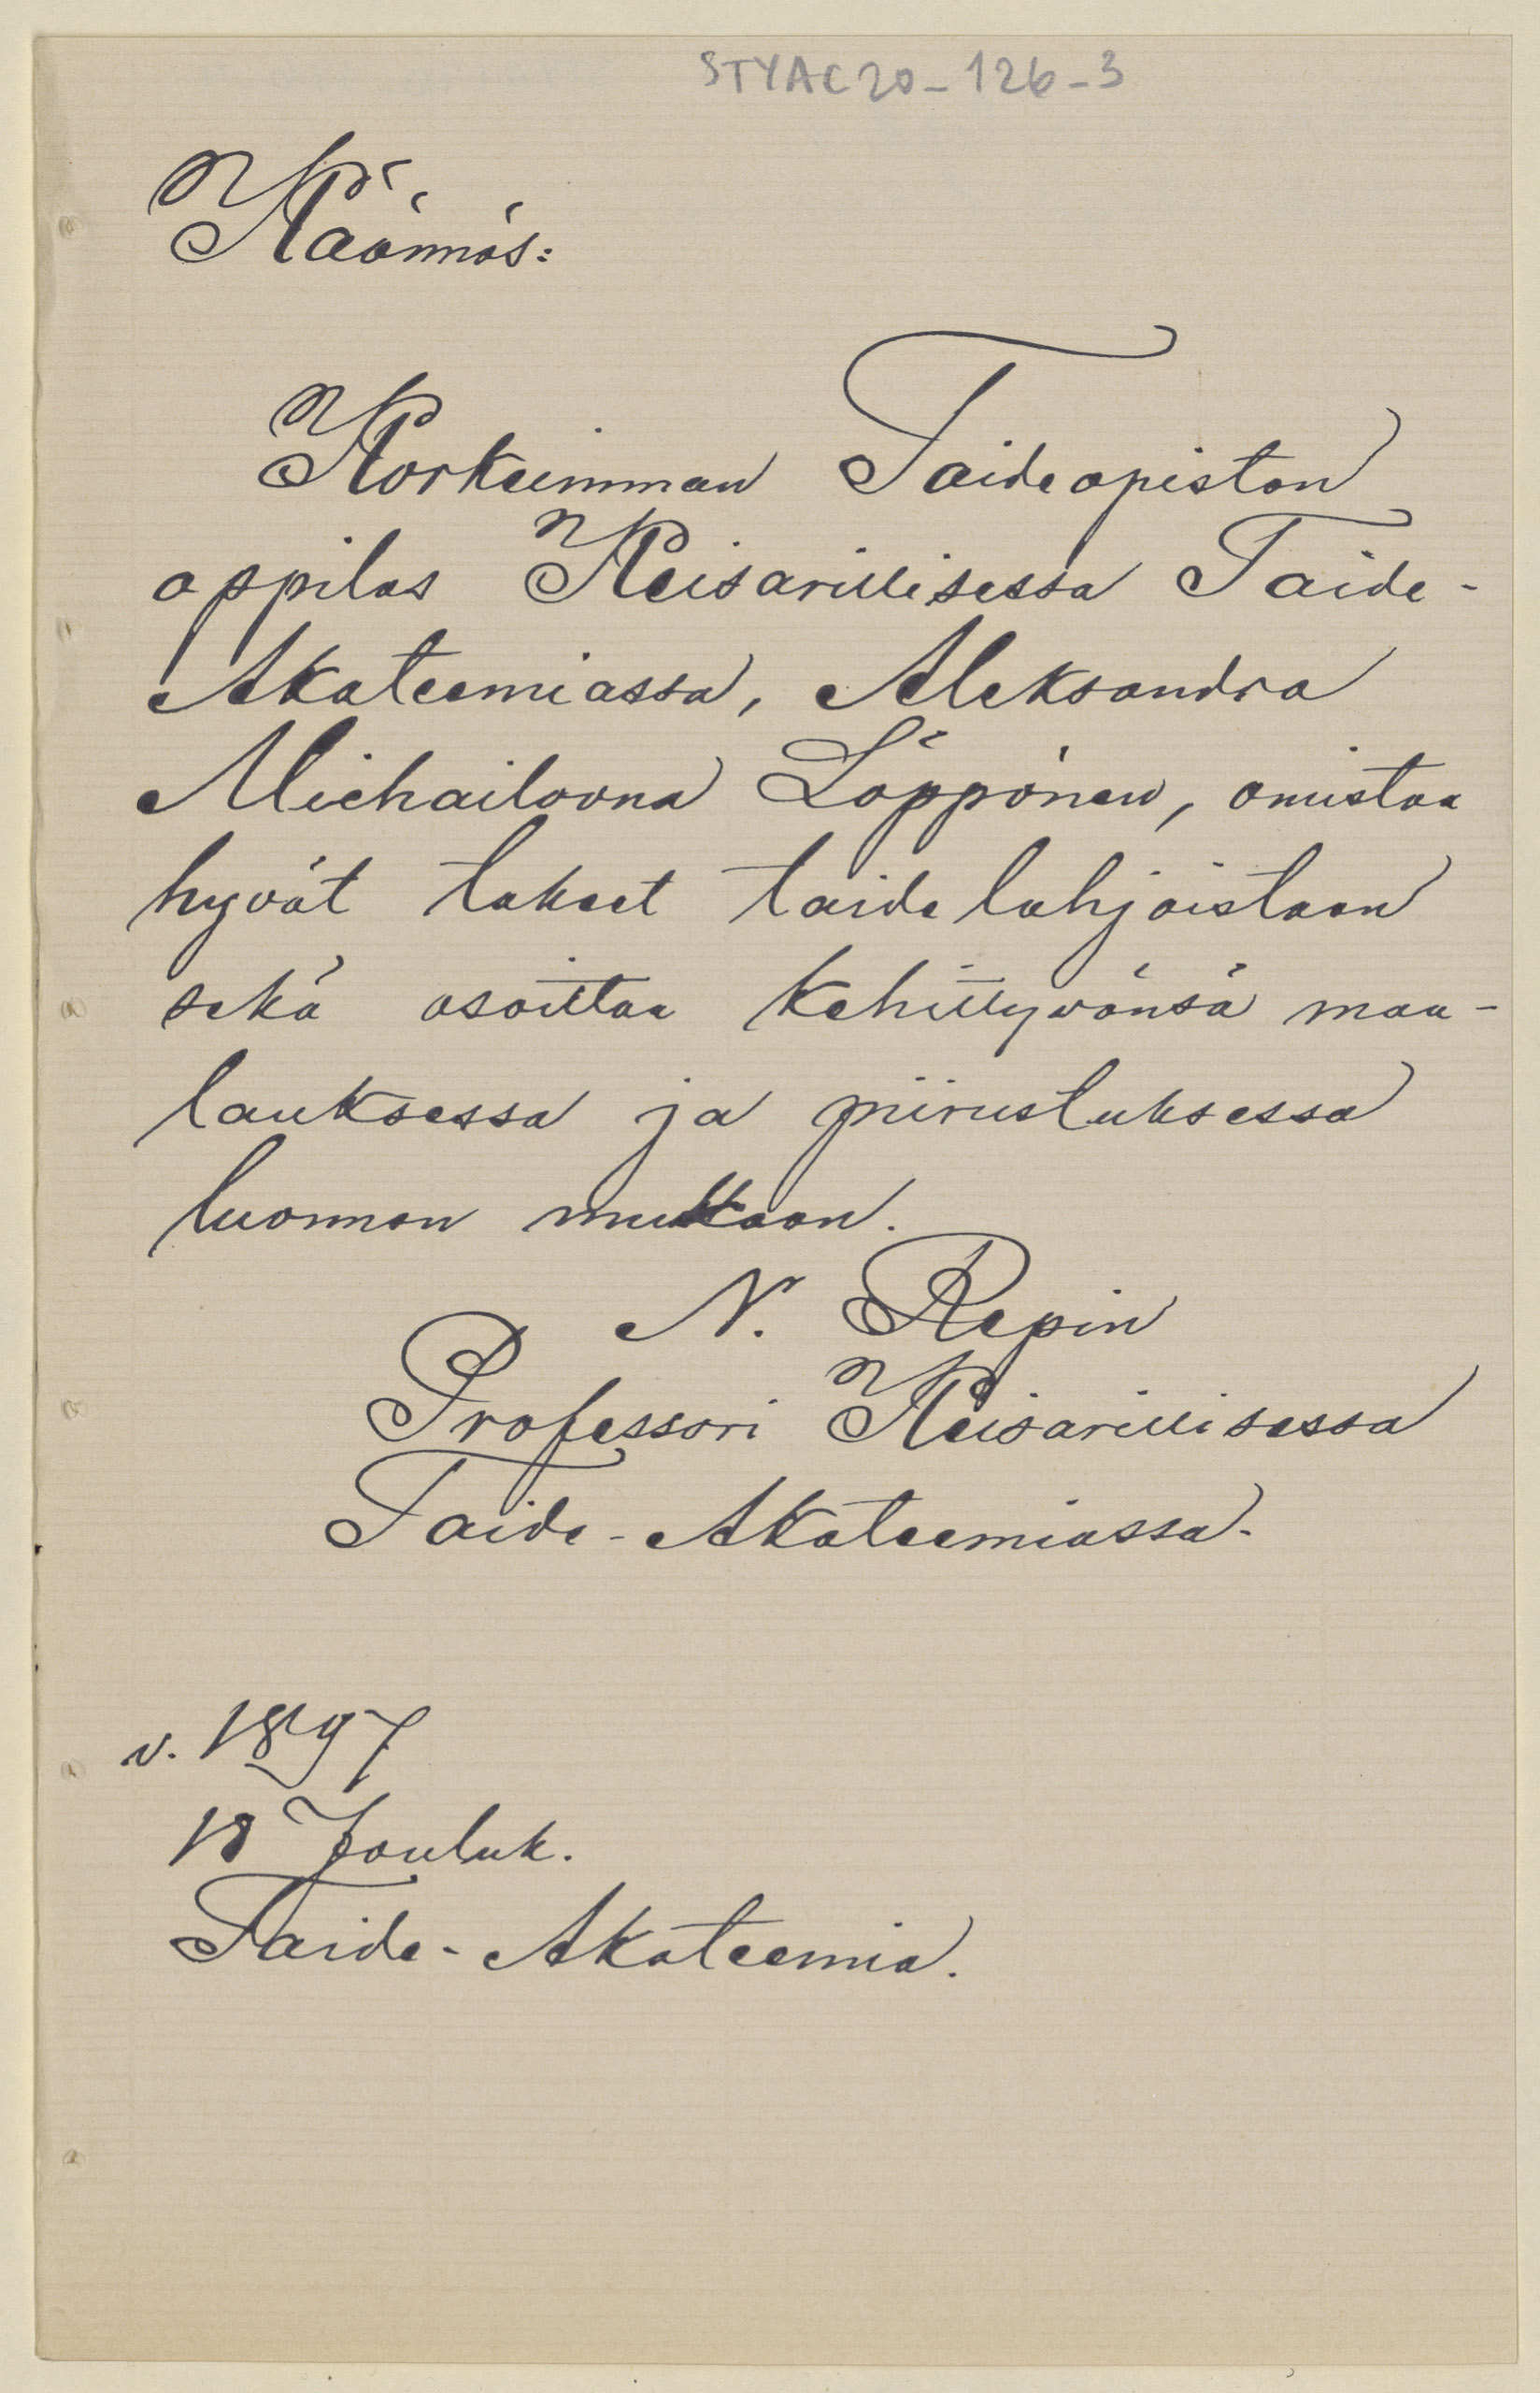 STYAC20-126-3
Käännös:
Korkeimman Taideopiston
oppilas Keisarillisessa Taide-
Akateemiassa, Aleksandra
Michailovna Löppönen, omistaa
hyvät takeet taidelahjoistaan
sekä osoittaa kehittyvänsä maa-
lauksessa ja piirustuksessa
luonnon mukaan.
N. Repin
Professori Keisarillisessa
Taide-Akateemiassa.
v. 1897
18 Jouluk.
Taide-Akateemia.